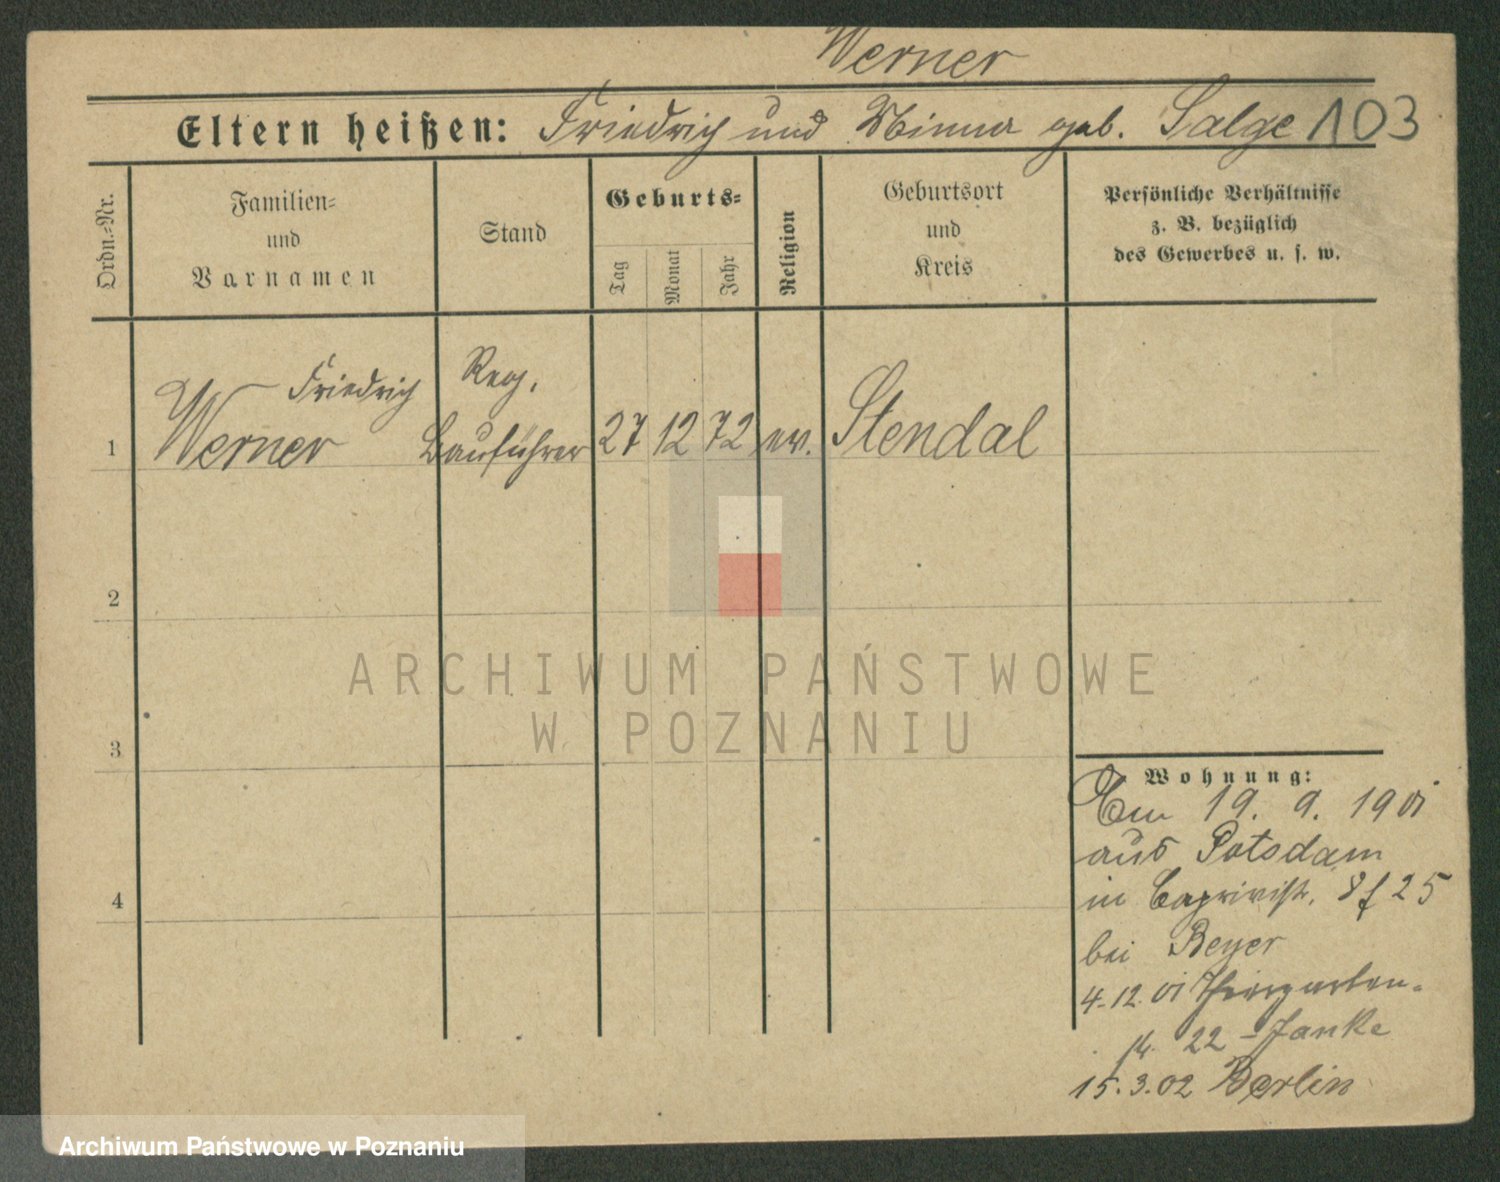 Werner
Eltern heißen: Friedrich und Minna geb. Salge 103
Ordn.-Nr.
Familien-
und
Vornamen
Stand
Geburts-
Tag
Monat
Jahr
Religion
Geburtsort
und
Kreis
Persönliche Verhältnisse
z. B. bezüglich
des Gewerbes u. s. w.
Friedrich Reg.
1 Werner Bauführer 27 12 72 ev. Stendal
2
3
4
ARCHIWUM PAŃSTWOWE
W POZNANIU
Wohnung:
Am 19. 9. 1901
aus Potsdam
in Caprivistr. 25
bei Beyer
4.12.01 Thiergarten-
str. 22 - Janke
15.3.02 Berlin
Archiwum Państwowe w Poznaniu